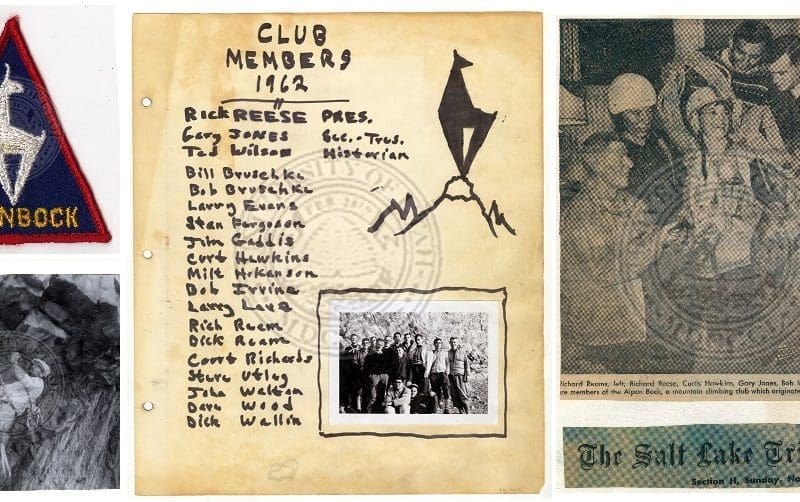 NBOCK
CLUB
MEMBERS
1962
Rick REESE PRES.
Gary JONES Sec.-Tres.
Ted Wilson Historian
Bill Bruschke
Bob Bruschke
Larry Evans
Stan Ferguson
Jim Gaddis
Curt Hawkins
Milt Hokanson
Bob Irvine
Larry Love
Rich Ream
Dick Ream
Court Richards
Steve Utley
John Walton
Dave Wood
Dick Wallin
Richard Reams, left, Richard Reese, Curtis Hawkins, Gary Jones, Bob
re members of the Alpen Bock, a mountain climbing club which originate
The Salt Lake Tri
Section H, Sunday, No